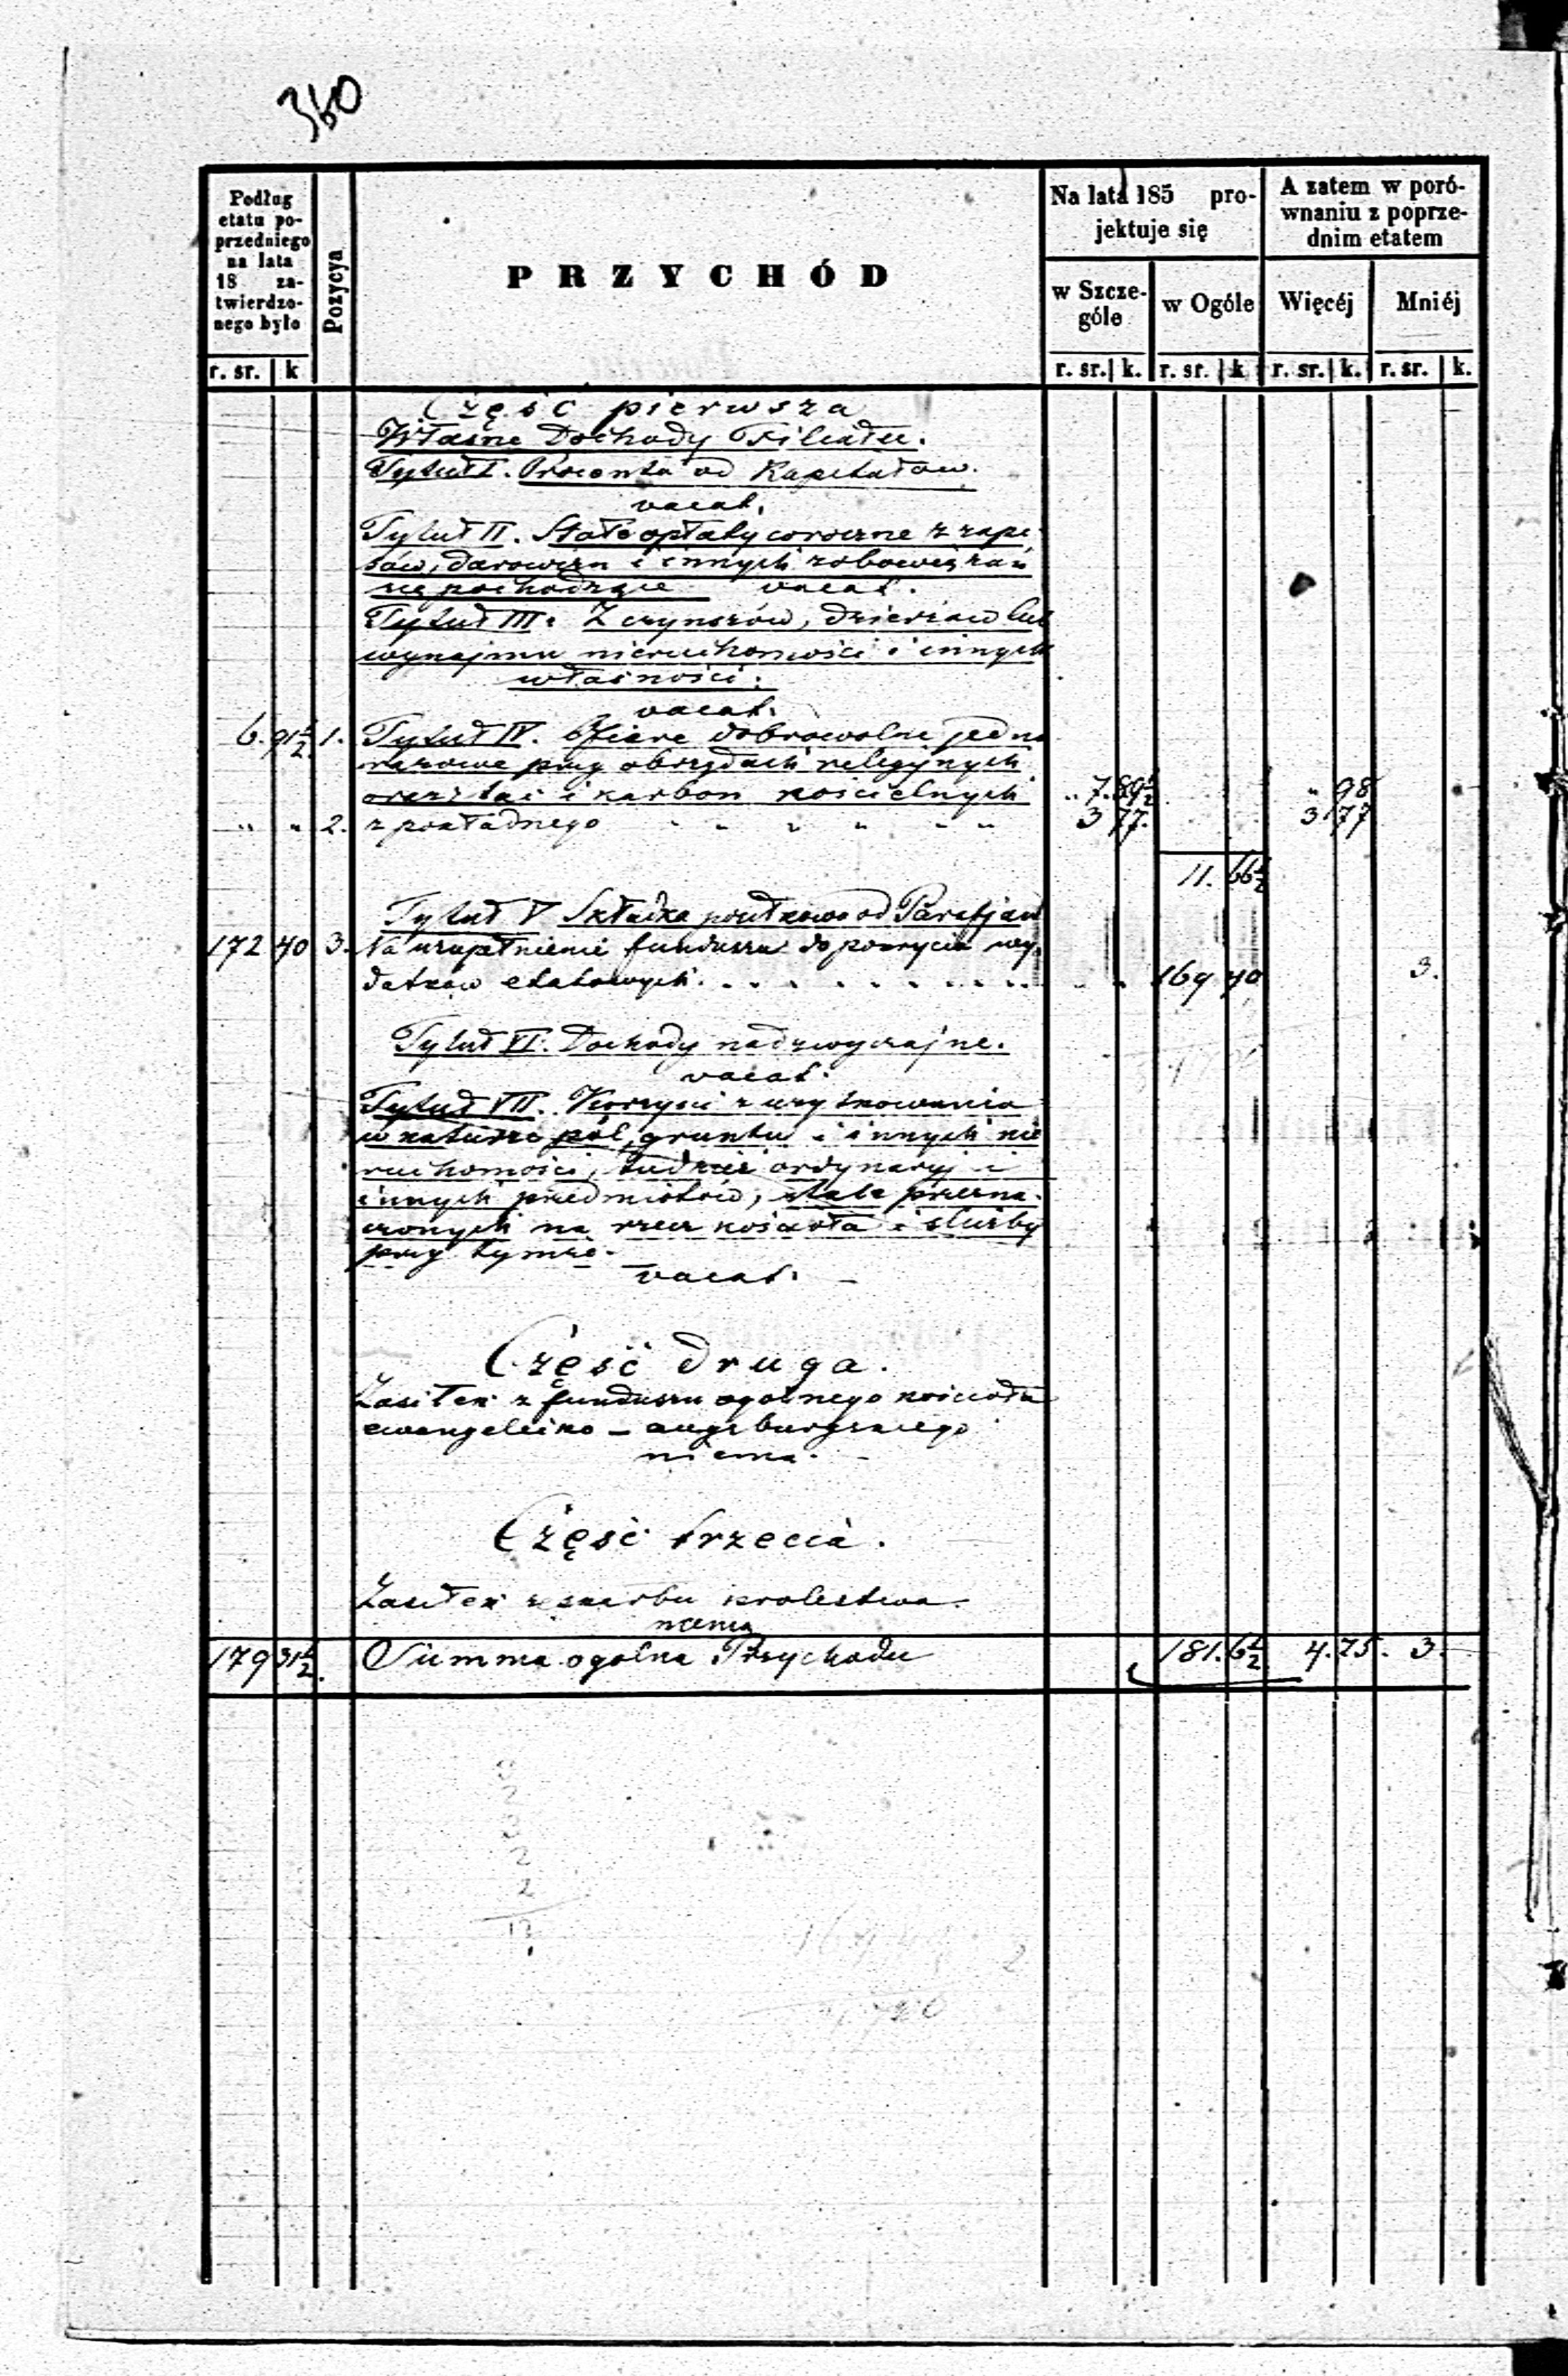 360
Podług etatu poprzedniego na lata 18 zatwierdzonego było
Pozycya
PRZYCHÓD
Na lata 185 projektuje się
A zatem w porównaniu z poprzednim etatem
w Szczególe
w Ogóle
Więcéj
Mniéj
r. sr. k
r. sr. k. r. sr. k r. sr. k. r. sr. k.
Część pierwsza
Własne Dochody Filiału.
Tytuł I. Procenta od Kapitałów.
vacat.
Tytuł II. Stałe opłaty coroczne z zapi-
sów, darowizn i innych zobowiązań
się pochodzące vacat.
Tytuł III. Z czynszów, dzierżaw lub
wynajmu nieruchomości i innych
własności.
vacat.
6. 91½ 1. Tytuł IV. Ofiary dobrowolne jedno
razowe przy obrzędach religijnych
oraz z tac i karbon kościelnych „ 7. 89½ „ 98
„ „ 2. z pokładnego 3 77. 3 77
11. 66½
Tytuł V Składka posiłkowa od Parafjan
172 40 3. Na uzupełnienie funduszu do pokrycia wy-
datków etatowych. 169 40 3.
Tytuł VI. Dochody nadzwyczajne.
vacat.
Tytuł VII. Korzyści z użytkowania
w naturze pól, gruntu i innych nie
ruchomości, tudzież ordynaryj i
innych przedmiotów, stale przezna-
czonych na rzecz kościoła i służby
przy tymże.
vacat.
Część druga.
Zasiłek z funduszu ogólnego kościoła
ewangelicko – augsburgskiego
niema.
Część trzecia.
Zasiłek ze skarbu królestwa
niema
179 31½. Summa ogólna Przychodu 181. 6½ 4. 75. 3.